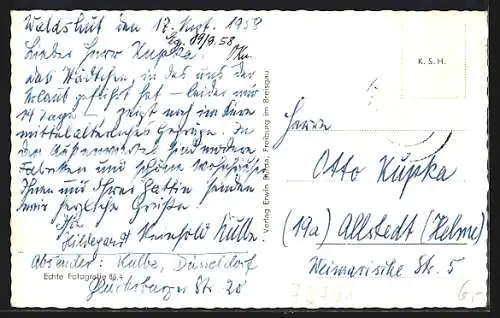 Waldshut den 17. Sept. 1958
Lieber Herr Kupka.
Das Städtchen, in das uns der
Urlaub geführt hat – leider nur
14 Tage – zeigt noch im Kern
mittelalterliches Gepräge. In
den Außenvierteln sind moderne
Fabriken und schöne Wohnhäuser
Ihnen und Ihrer Gattin senden
wir herzliche Grüße.
Ihre
Hildegard + Reinhold Külbe.
Absender: Külbe, Düsseldorf
Glücksburger Str. 20
Echte Fotografie
Verlag Erwin Freiburg im Breisgau
K. S. H.
Herrn
Otto Kupka
(19a) Allstedt (Helme)
Weimarische Str. 5